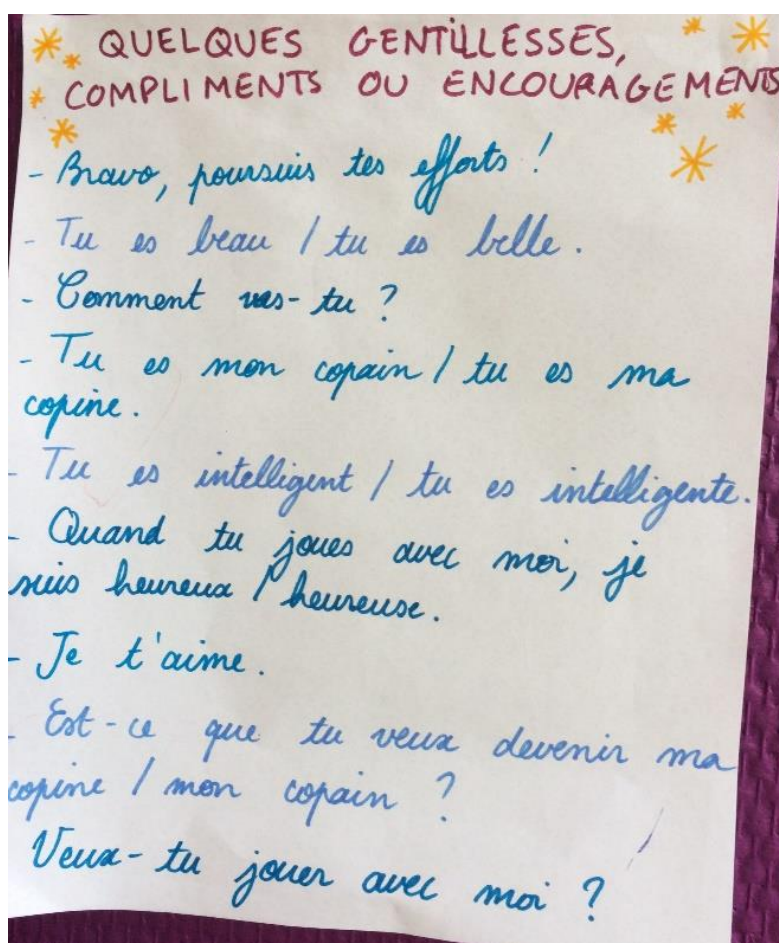 QUELQUES GENTILLESSES,
COMPLIMENTS OU ENCOURAGEMENTS
- Bravo, poursuis tes efforts !
- Tu es beau / tu es belle.
- Comment vas-tu ?
- Tu es mon copain / tu es ma
copine.
- Tu es intelligent / tu es intelligente.
- Quand tu joues avec moi, je
suis heureux / heureuse.
- Je t'aime.
- Est-ce que tu veux devenir ma
copine / mon copain ?
Veux-tu jouer avec moi ?